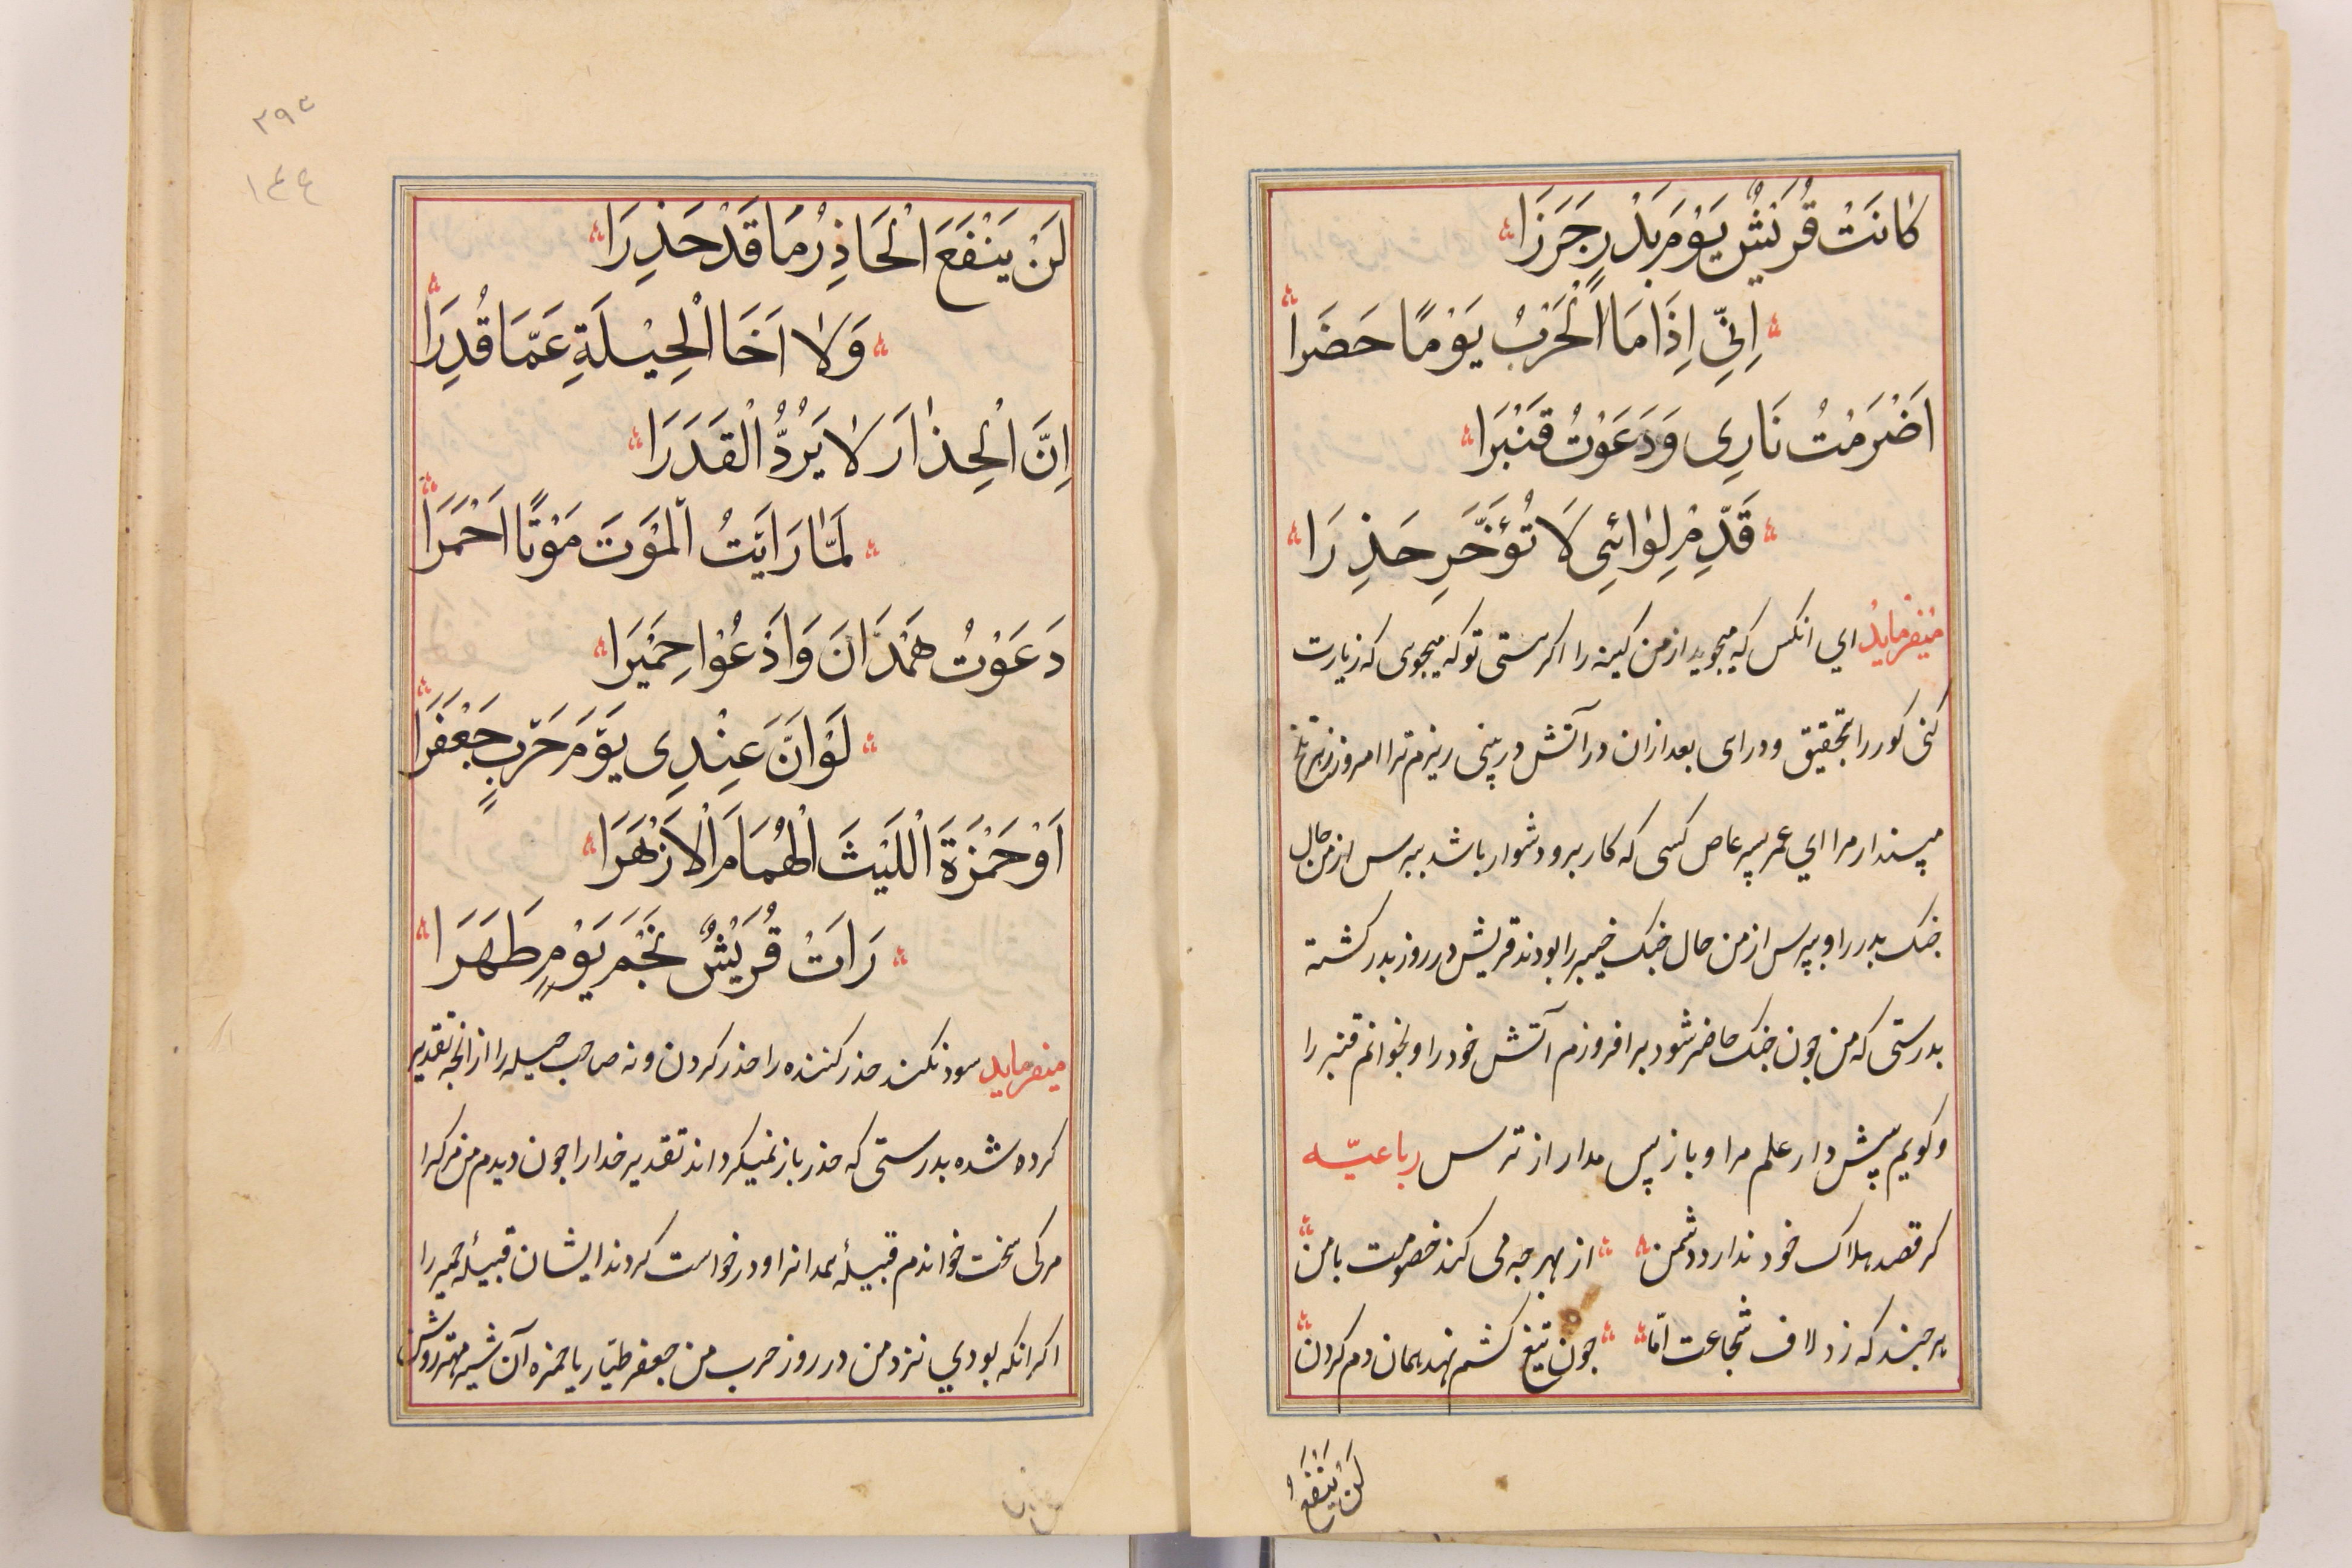 كٰانَتْ قُرَيْشٌ يَوْمَ بَدْرٍ جَزَرَا
اِنّي اِذَا مَا الْحَرْبُ يَوْمًا حَضَرَا
اَضْرَمْتُ نَارِى وَدَعَوْتُ قَنْبَرَا
قَدِّمْ لِوٰائِى لَا تُؤَخَّرِ حَذِرَا
میفرماید اي انکس که میجوید از من کینه را اکر هستی تو که میجوی که زیارت
کنی کور را بتحقیق و درای بعد از ان در آتش در پینی ریزم ترا امروز زهر تلخ
مپندار مرا اي عمر پسر عاص کسی که کار برو دشوار باشد بپرس از من حال
جنک بدر را و بپرس از من حال جنک خیبر را بودند قریش در روز بدر کشته
بدرستی که من چون جنک حاضر شود بر افروزم آتش خود را و بخوانم قنبر را
و کویم پیش دار علم مرا و باز پس مدار از ترس رباعیّه
کر قصد هلاک خود ندارد دشمن از بهر چه می کند خصومت با من
هر چند که زد لاف شجاعت امّا چون تیغ کشم نهد همان دم کردن
لن ینفع
٢٩٣
١٤٤
لَنْ يَنْفَعَ الْحَاذِرُ مَا قَدْ حَذِرَا
وَلٰا اَخَا الْحِيْلَةِ عَمَّا قُدِرَا
اِنَّ الْحِذٰارَ لٰا يَرُدُّ الْقَدَرَا
لَمّٰا رَايَتُ الْمَوْتَ مَوْتًا اَحْمَرَا
دَعَوْتُ هَمْدَانَ وَادْعُوْا حِمْيَرَا
لَوْ اَنَّ عِنْدِى يَوْمَ حَرْبٍ جَعْفَرَا
اَوْ حَمْزَةَ اللَّيْثَ الْهُمَامَ الْاَزْهَرَا
رَاَتْ قُرَيْشٌ نَجْمَ يَوْمٍ ظَهَرَا
میفرماید سود نکند حذر کننده را حذر کردن و نه صاحب حیله را از انچه تقدیر
کرده شده بدرستی که حذر باز نمیکرداند تقدیر خدا را چون دیدم من مرک را
مرکی سخت خواندم قبیلهٔ همدانرا و درخواست کردند ایشان قبیلهٔ حمیر را
اکر انکه بودي نزد من در روز حرب من جعفر طیّار یا حمزه آن شیر مهتر روشن